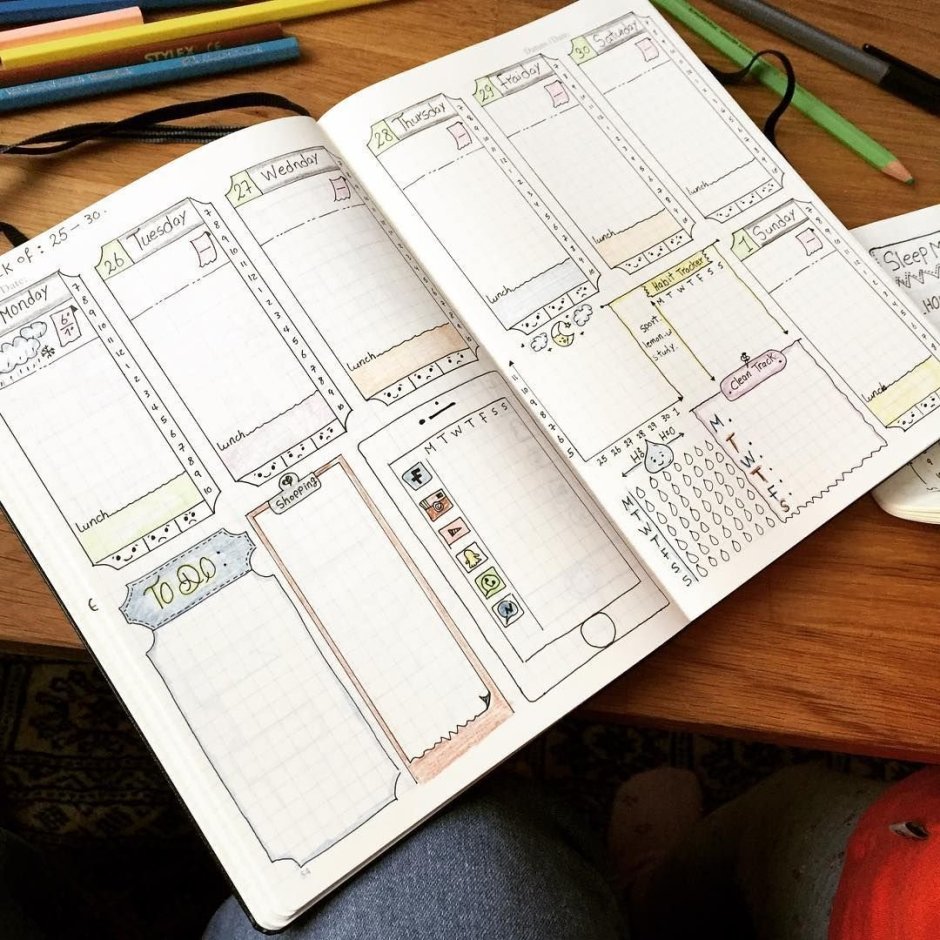 STYLEX
CK OF : 25 - 30.
Date:
Monday
6°
1°
lunch
26 Tuesday
lunch
27 Wednday
lunch
TO DO :
Shopping
M T W T F S S
54
28 Thursday
lunch
29 Fraiday
lunch
30 Saturday
lunch
1 Sunday
lunch
{ Habit Tracker }
M T W T F S S
sport.
lemon.w
study.
Clean Track
M.
T.
W.
T.
F.
S
25 26 27 28 29 30 1
H2O
M
T
W
T
F
S
S
Sleep M
HO